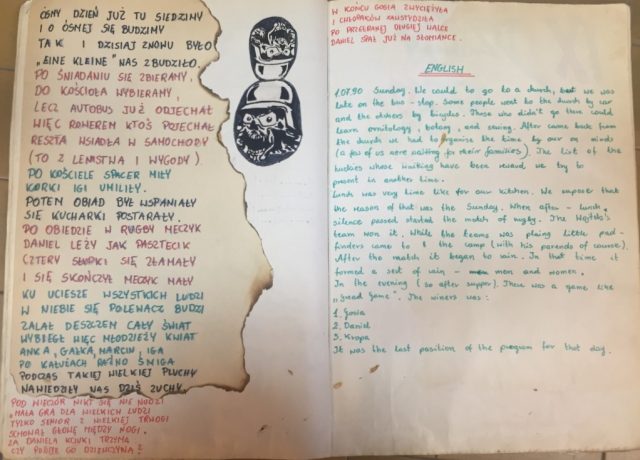 ÓSMY DZIEŃ JUŻ TU SIEDZIMY
I O ÓSMEJ SIĘ BUDZIMY
TAK I DZISIAJ ZNOWU BYŁO
„EINE KLEINE" NAS ZBUDZIŁO.
PO ŚNIADANIU SIĘ ZBIERAMY,
DO KOŚCIOŁA WYBIERAMY,
LECZ AUTOBUS JUŻ ODJECHAŁ
WIĘC ROWEREM KTOŚ POJECHAŁ
RESZTA WSIADŁA W SAMOCHODY
(TO Z LENISTWA I WYGODY)
PO KOŚCIELE SPACER MIŁY
KORKI IGI UMILIŁY.
POTEM OBIAD BYŁ WSPANIAŁY
SIĘ KUCHARKI POSTARAŁY.
PO OBIEDZIE W RUGBY MECZYK
DANIEL LEŻY JAK PASZTECIK
CZTERY SŁUPKI SIĘ ZŁAMAŁY
I SIĘ SKOŃCZYŁ MECZYK MAŁY
KU UCIESZE WSZYSTKICH LUDZI
W NIEBIE SIĘ POLEWACZ BUDZI
ZALAŁ DESZCZEM CAŁY ŚWIAT
WYBIEGŁ WIĘC MŁODZIEŻY KWIAT
ANKA, GAŁKA, MARCIN, IGA
PO KAŁUŻACH RAŹNO ŚMIGA
PODCZAS TAKIEJ WIELKIEJ PLUCHY
NAWIEDZIŁY NAS DZIŚ ZUCHY.
POD WIECZÓR NIKT SIĘ NIE NUDZI
„MAŁA GRA DLA WIELKICH LUDZI
TYLKO SENIOR Z WIELKIEJ TRWOGI
SCHOWAŁ GŁOWĘ MIĘDZY NOGI.
ZA DANIELA KCIUKI TRZYMA
CZY POBIJE GO DZIEWCZYNA?
W KOŃCU GOSIA ZWYCIĘŻYŁA
I CHŁOPAKÓW ZAWSTYDZIŁA
PO PRZEGRANEJ DŁUGIEJ WALCE
DANIEL SPAŁ JUŻ NA SŁOMIANCE.
ENGLISH
1.07.90 Sunday. We could to go to a church, but we was
late on the bus-stop. Some people went to the church by car
and the others by bicycles. Those who didn't go there could
learn ornitology, botany, and sewing. After came back from
the church we had to organise the time by our on minds
(a few of us were waiting for their families). The list of the
luckies whose waiting have been reward we try to
present in another time.
Lunch was very time like for our kitchen. We suposer that
the reason of that was the Sunday. When after-lunch
silence passed started the match of rugby. The Wojtek's
team won it. While the teams was plaing little pad-
finders came to the camp (with his parends of course).
After the match it began to rain. In that time it
formed a sest of rain - men and women.
In the evening (so after supper). There was a game like
„Great Game". The winers was:
1. Gosia
2. Daniel
3. Kropa
It was the last position of the program for that day.